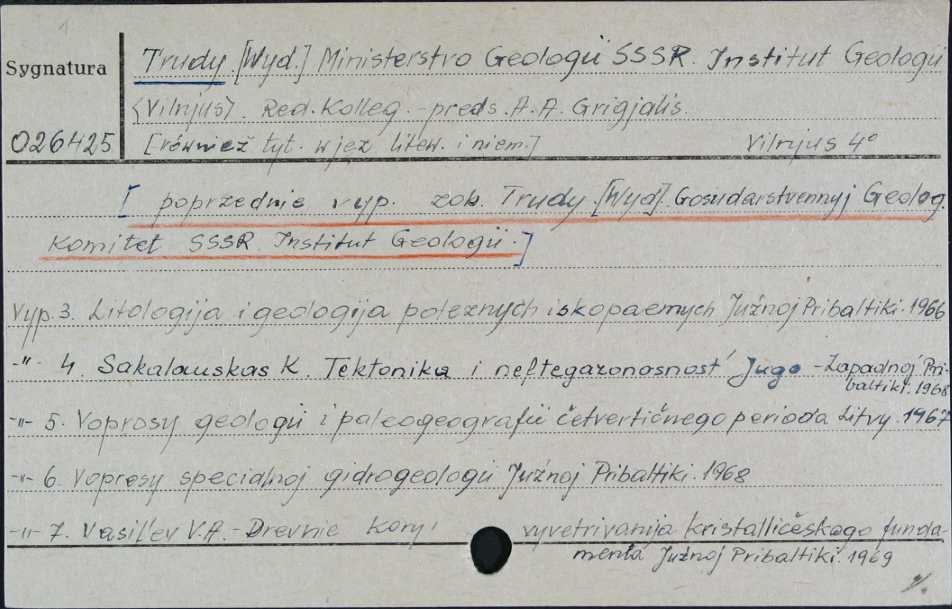 1
Sygnatura
Trudy. [Wyd.] Ministerstvo Geologii SSSR. Institut Geologii
<Vilnjus>. Red. Kolleg. - preds. A. A. Grigjalis.
026425 [również tyt. w jęz. litew. i niem.] Vilnjus 4°
[ poprzednie vyp. zob. Trudy. [Wyd]. Gosudarstvennyj Geolog.
Komitet SSSR. Institut Geologii.]
Vyp. 3. Litologija i geologija poleznych iskopaemych Južnoj Pribaltiki. 1966
-"- 4. Sakalauskas K. Tektonika i neftegazonosnost' Jugo-Zapadnoj Pri-
baltiki. 1968
-"- 5. Voprosy geologii i paleogeografii četvertičnego perioda Litvy. 1967
-"- 6. Voprosy specialnoj gidrogeologii Južnoj Pribaltiki. 1968
-"- 7. Vasil'ev V.A. - Drevnie Kory vyvetrivanija kristalličeskago funda-
menta Južnoj Pribaltiki. 1969